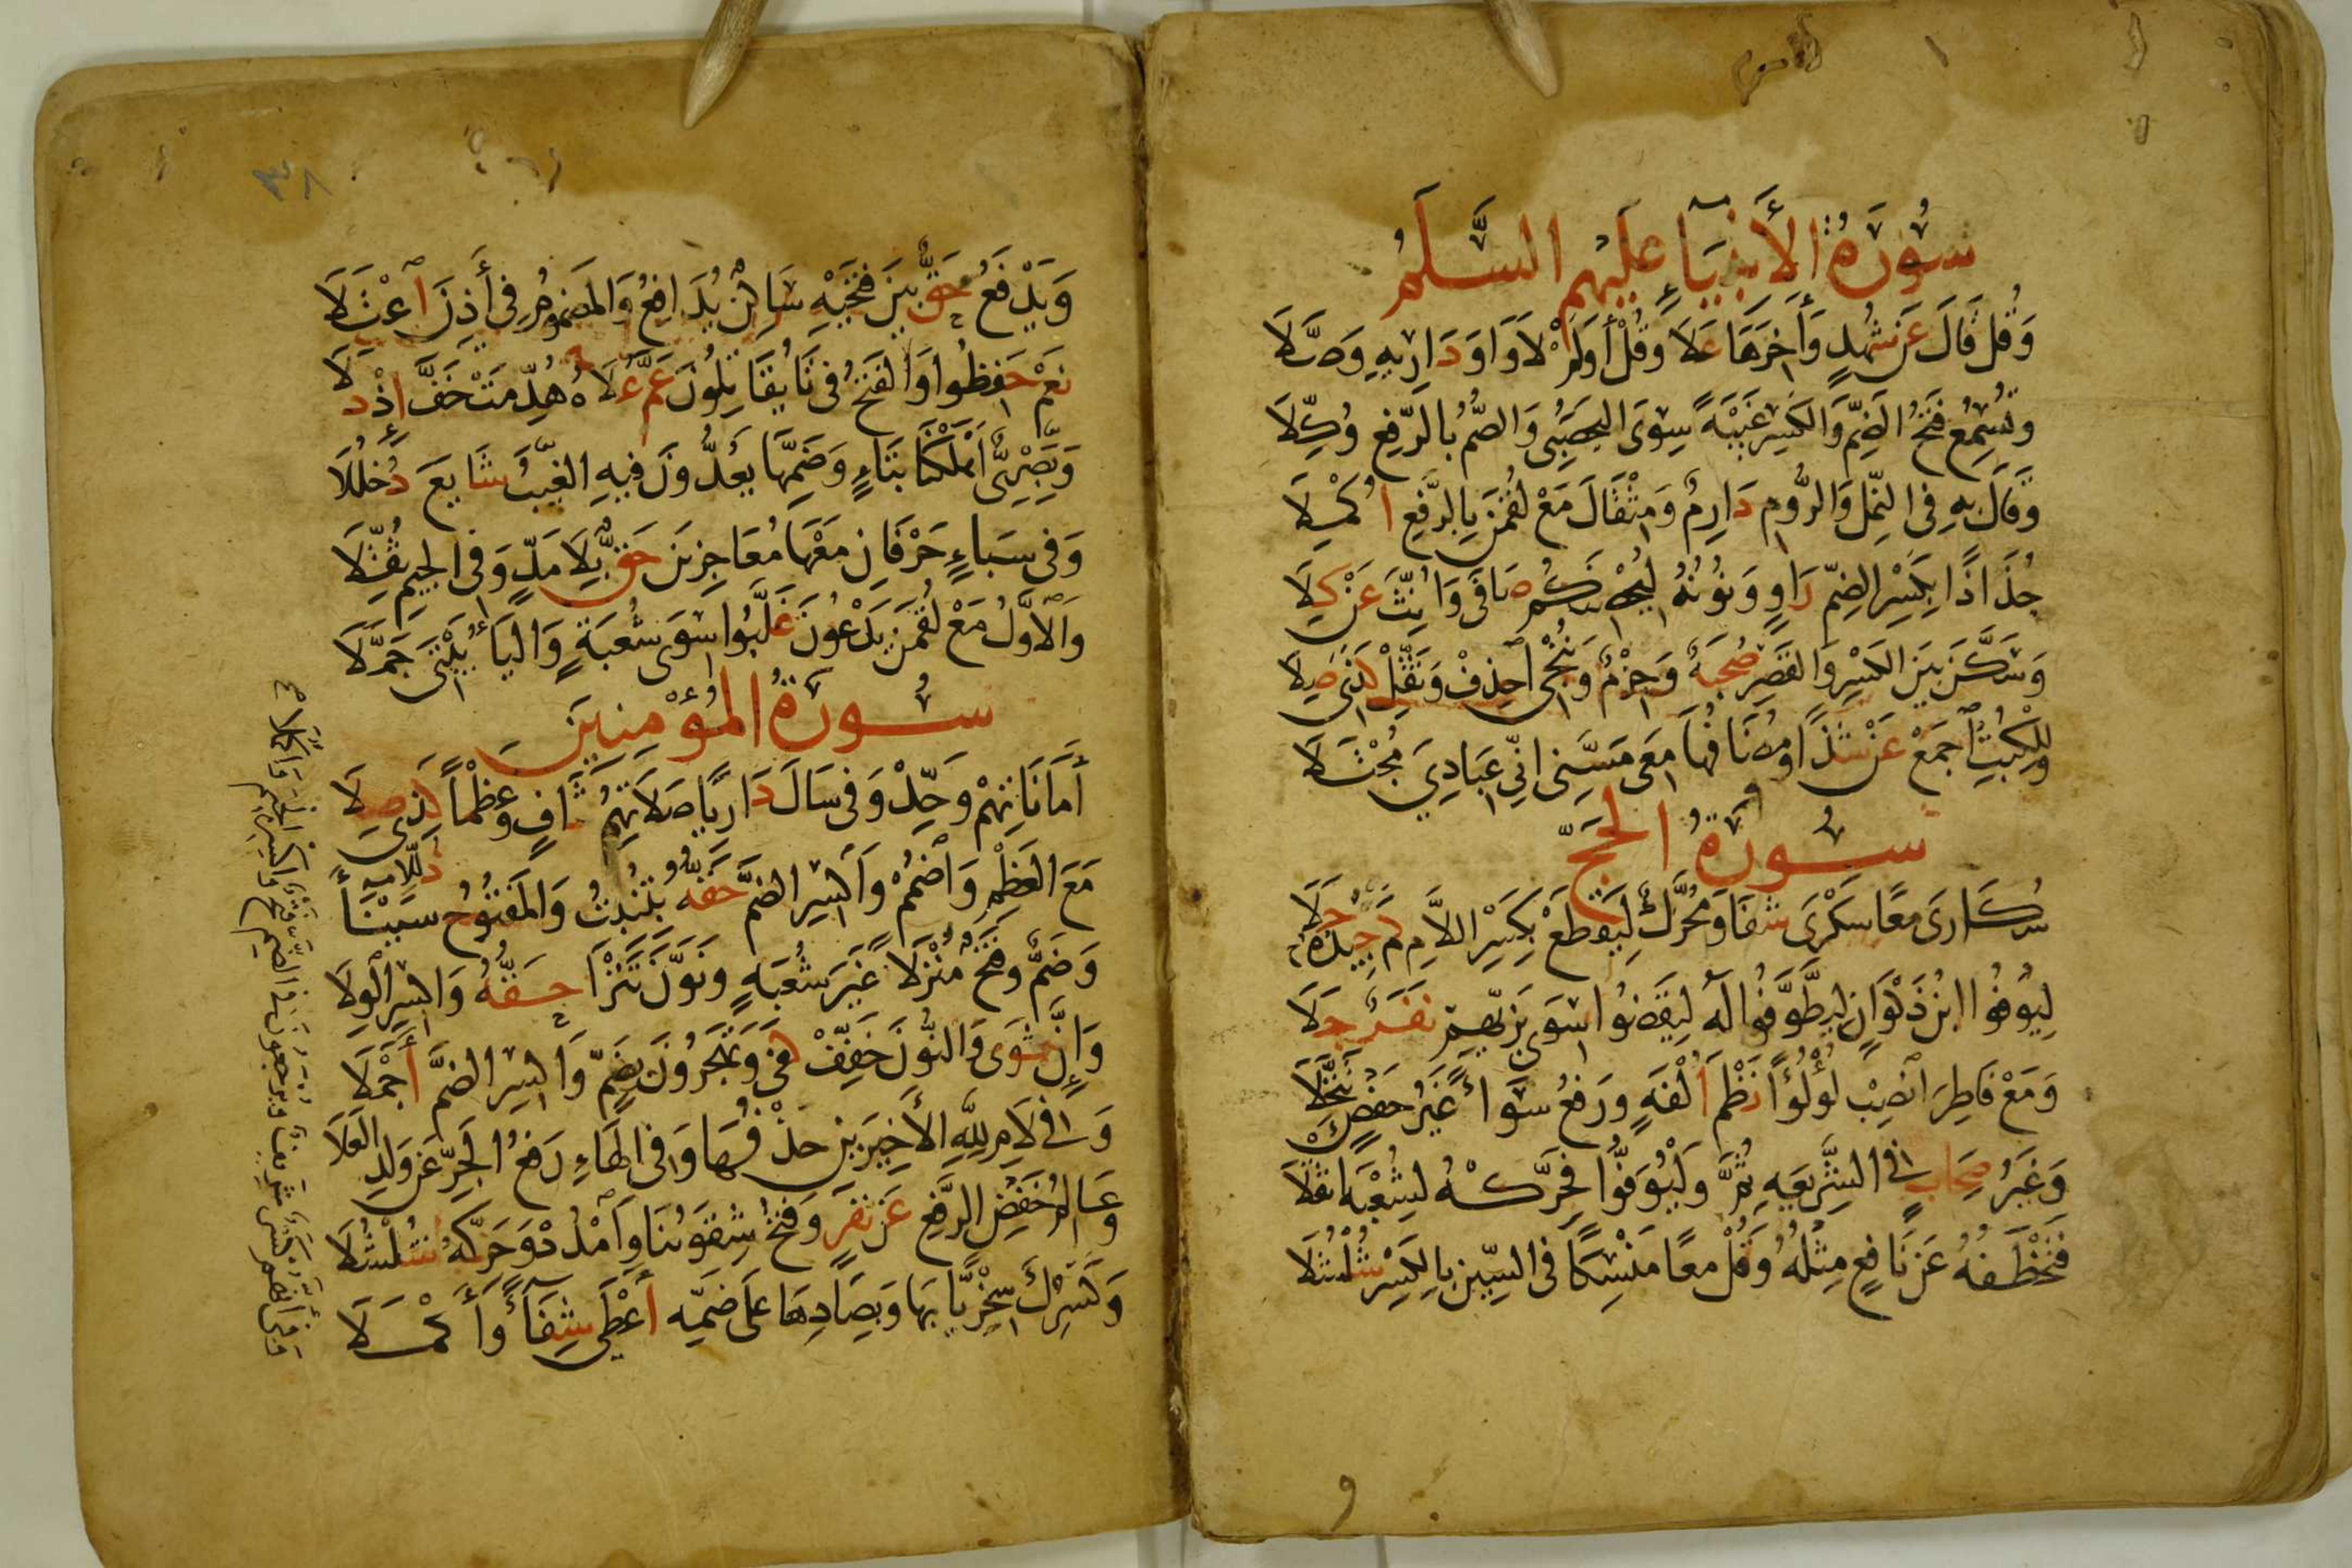 سُورَةُ الأَنْبِيَاءِ عَلَيْهِم السَّلَمُ
وَقُل قَالَ عَن شُهْدٍ وَآخِرَهَا عَلَا وَقُلْ أَوَلَمْ لَا وَاوَ دَارِيهِ وَصَّلَا
وَتُسْمِعُ فَتْحُ الضَمِّ وَالكَسْرِ غَيْبَةً سِوَى اليَحْصَبِى وَالصُّمُّ بِالرَّفْعِ وُكِّلَا
وَقَالَ بِهِ فِى النَّمْلِ وَالرُّومِ دَارِمٌ وَمِثْقَالَ مَعْ لُقْمَنَ بِالرَّفْعِ أُكْمِلَا
جُذَاذًا بِكَسْرِ الضَمِّ رَاوٍ وَنُونُهُ لِيُحْصِنَكُم صَافَى وَأُنِّثَ عَنْ كِلَا
وَسَكَّنَ بَيْنَ الكَسْرِ وَالقَصْرِ صُحْبَةٌ وَحِرْمٌ وَنُنْجِى احْذِفْ وَثَقِّلْ كَذِى صِلَا
وَلِلْكُتُبِ اجْمَعْ عَنْ شَذًا وَمُضَافُهَا مَعِى مَسَّنِى إِنِّى عِبَادِيَ مُجْتَلَا
سُورَةُ الحَجِّ
سُكَارَى مَعًا سَكْرَى شَفَا وَمُحَرَّكٌ لِيَقْطَعْ بِكَسْرِ اللَّامِ كَمْ جِيدُهُ حَلَا
لِيُوفُوا ابْنُ ذَكْوَانٍ لِيَطَّوَّفُوا لَهُ لِيَقْضُوا سِوَى بَزِّيِّهِمْ نَفَرٌ جَلَا
وَمَعْ فَاطِرَ انْصِبْ لُؤْلُؤًا نَظْمَ أُلْفَةٍ وَرَفْعُ سَوَاءً غَيْرُ حَفْصٍ تَنَخَّلَا
وَغَيْرُ صِحَابٍ فِى الشَّرِيعَةِ ثُمَّ وَلْيُوَفُّوا فَحَرِّكْهُ لِشُعْبَةَ أَثْقَلَا
فَتَخْطَفُهُ عَن نَافِعٍ مِثْلُهُ وَقُلْ مَعًا مَنْسِكًا فِى السِّينِ بِالكَسْرِ شُلْشُلَا
٣٨
وَيَدْفَعُ حَقٌّ بَيْنَ فَتْحَيْهِ سَاكِنٌ يُدَافِعُ وَالمَضْمُومُ فِى أَذِنَ اعْتَلَا
نَعَمْ حَفِظُوا وَالفَتْحُ فِى تَا يُقَاتَلُونَ عَمَّ عُلَاهُ هُدِّمَتْ خَفَّ إِذْ دَلَا
وَبَصْرِىٌّ اهْلَكْنَا بِتَاءٍ وَضَمِّهَا يَعُدُّونَ فِيهِ الغَيْبُ شَايَعَ دُخْلُلَا
وَفِى سَبَاءٍ حَرْفَانِ مَعْهَا مُعَاجِزِينَ حَقٌّ بِلَا مَدٍّ وَفِى الجِيمِ ثُقِّلَا
وَالأَوَّلُ مَعْ لُقْمَنَ يَدْعُونَ غَلَّبُوا سِوَى شُعْبَةٍ وَاليَاءُ بَيْتِىَ جَمَّلَا
سُورَةُ المُؤْمِنِينَ
أَمَانَاتِهِمْ وَحِّدْ وَفِى سَالَ دَارِيًا صَلَاتِهِمُ شَافٍ وَعَظْمًا كَذِى صِلَا
مَعَ العَظْمِ وَاضْمُمْ وَاكْسِرِ الضَمَّ حَقُّهُ بِتُنْبِتُ وَالمَفْتُوحُ سَيْنَاءَ ذُلِّلَا
وَضَمٌّ وَفَتْحٌ مُنْزَلًا غَيْرَ شُعْبَةٍ وَنَوَّنَ تَتْرًا حَقُّهُ وَاكْسِرِ الْوِلَا
وَإِنَّ ثَوَى وَالنُّونَ خَفِّفْ كَفَى وَتَهْجُرُونَ بِضَمٍّ وَاكْسِرِ الضَمَّ أَجْمَلَا
وَفِى لَامِ لِلَّهِ الأَخِيرَيْنِ حَذْفُهَا وَفِى الهَاءِ رَفْعُ الجَرِّ عَن وَلَدِ العَلَا
وَعَالِمُ خَفْضُ الرَّفْعِ عَن نَفَرٍ وَفَتْحُ شِقْوَتُنَا وَامْدُدْ وَحَرِّكْهُ شُلْشُلَا
وَكَسْرُكَ سُخْرِيًّا بِهَا وَبِصَادِهَا عَلَى ضَمِّهِ أَعْطَى شِفَاءً وَأَكْمَلَا